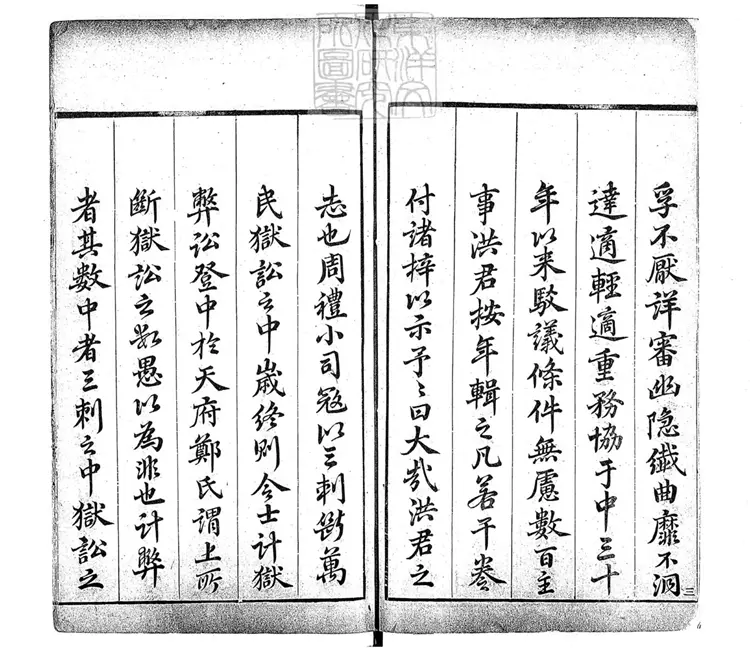 孚不厭詳審幽隐纎曲靡不洞
達適輕適重務恊于中三十
年以来駁議條件無慮數百主
事洪君按年輯之凡若干卷
付諸梓以示予〻曰大哉洪君之
志也周禮小司宼以三刺斷萬
民獄訟之中嵗终则令士計獄
弊訟登中於天府鄭氏謂上所
斷獄訟之数愚以為非也計弊
者其數中者三刺之中獄訟之
三
東洋文化研究所圖書